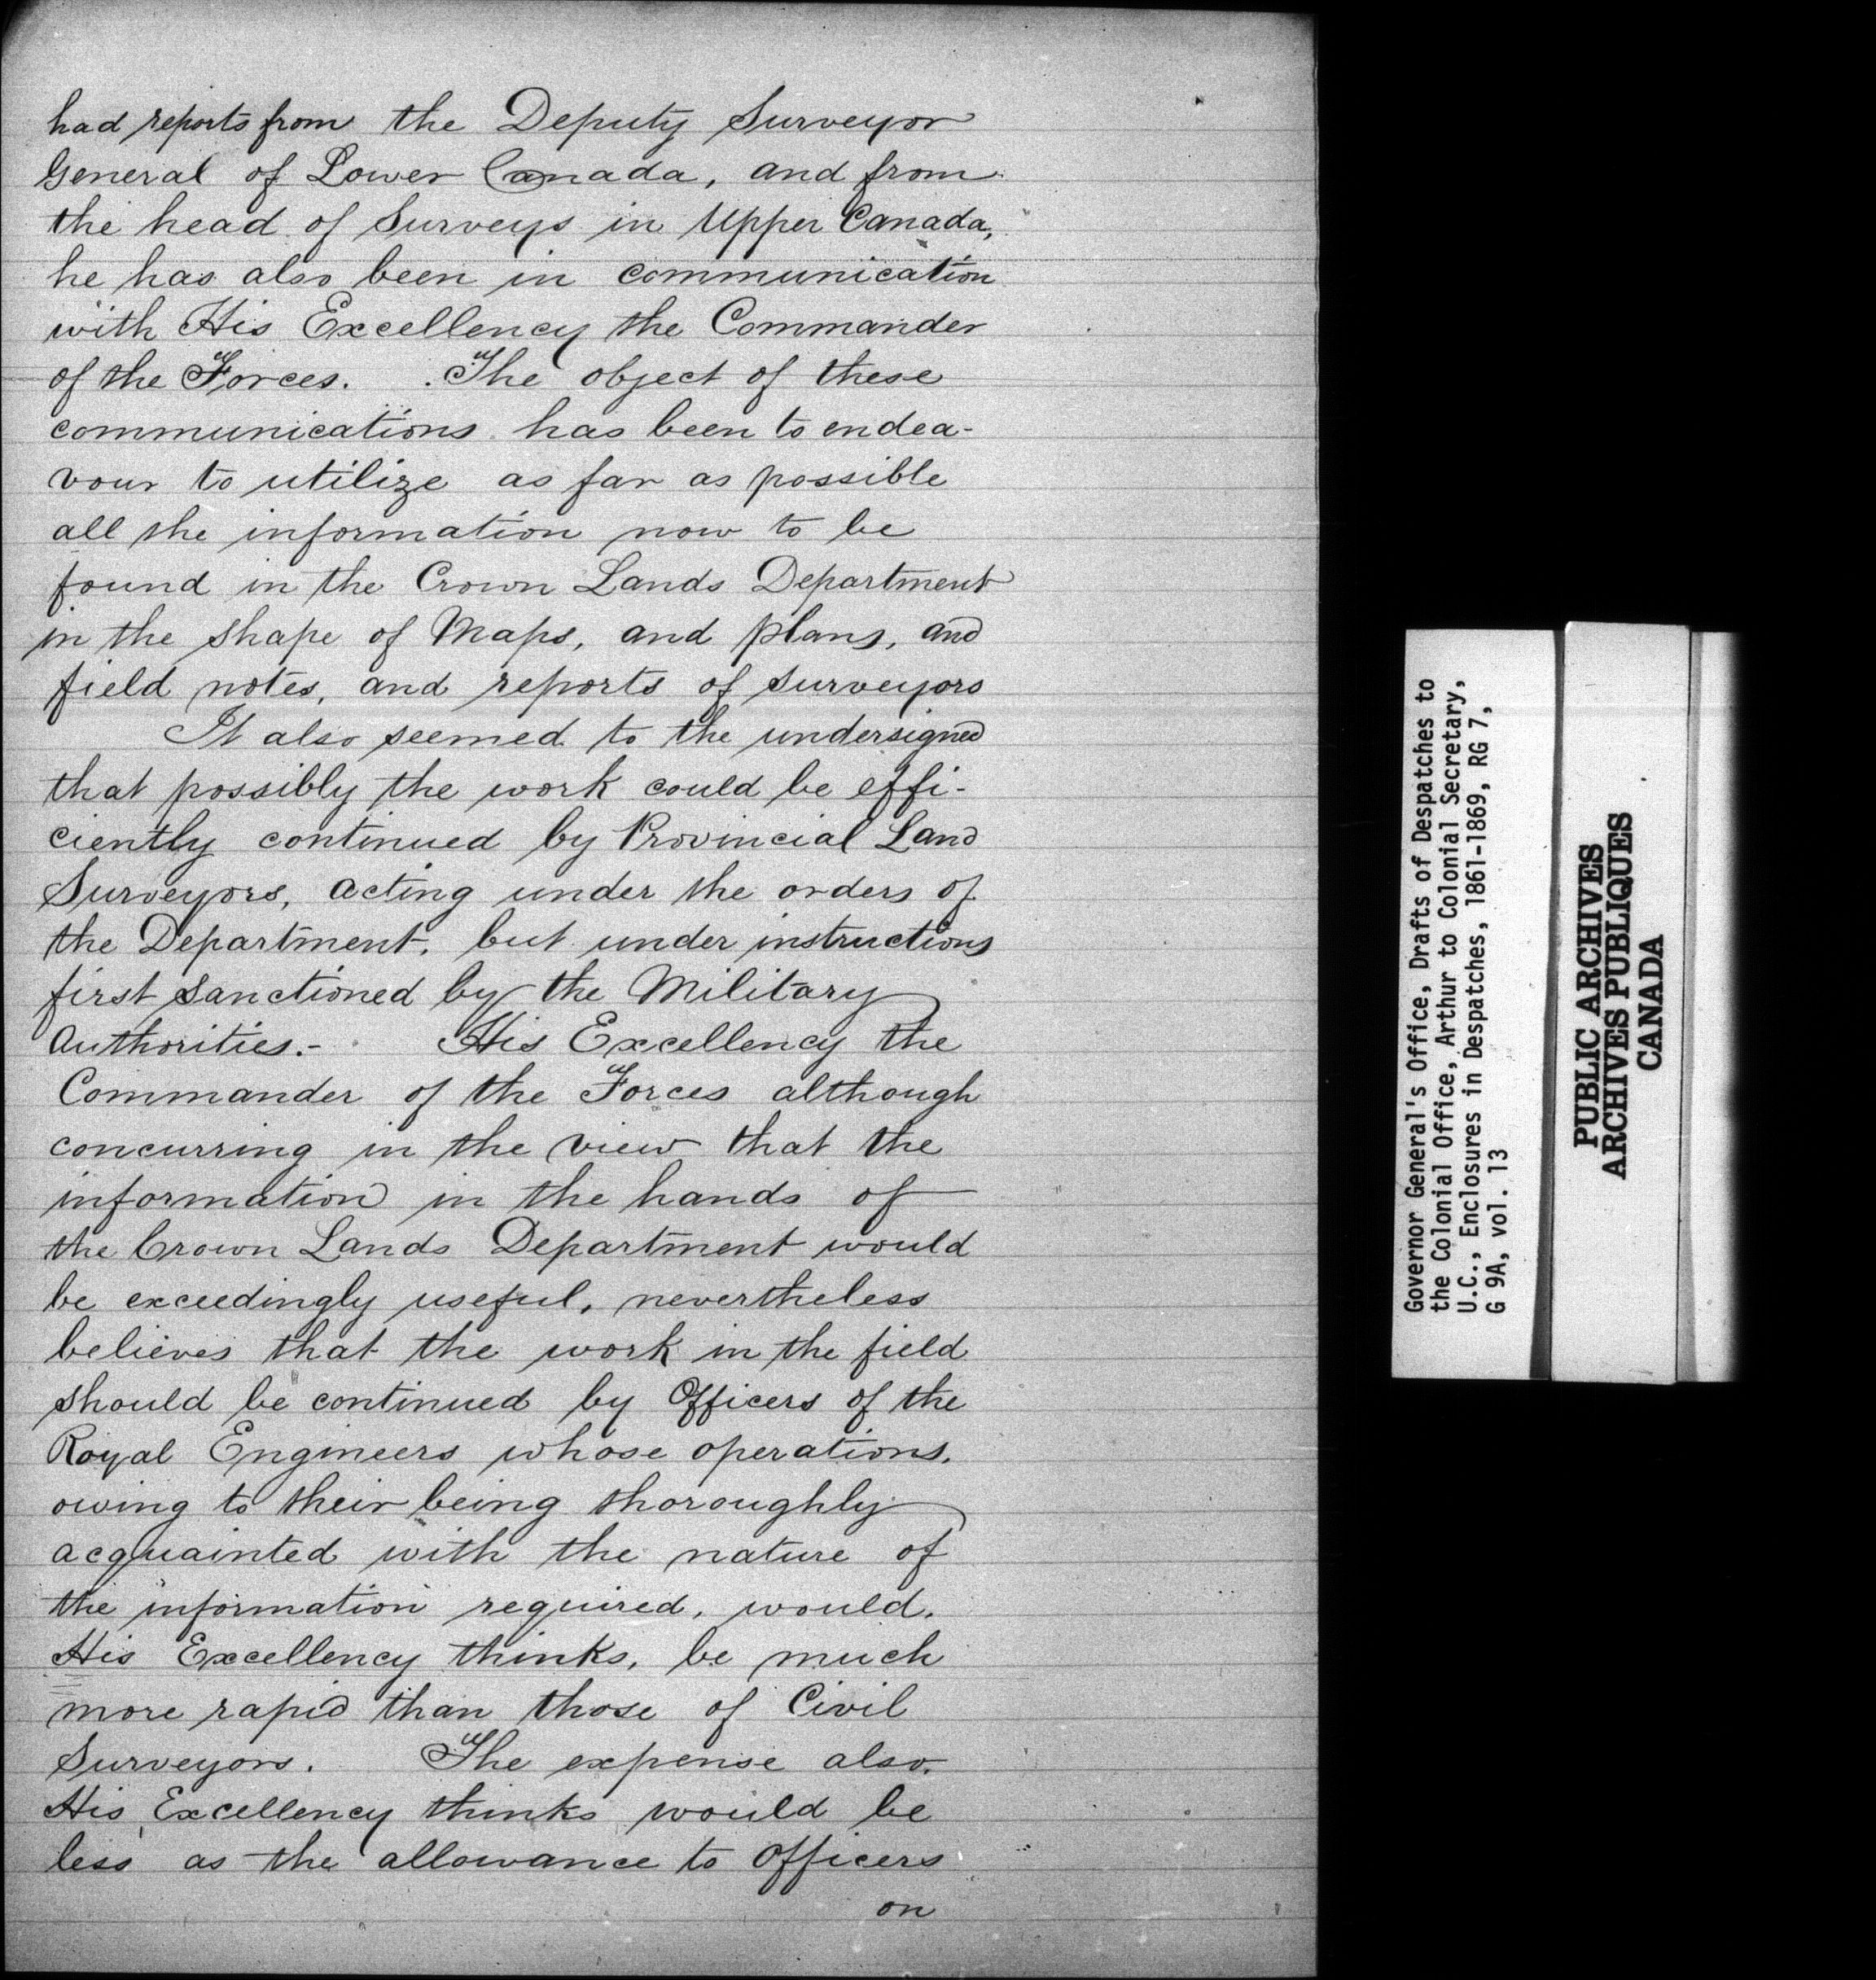 had reports from the Deputy Surveyor
General of Lower Canada, and from
the head of Surveys in Upper Canada,
he has also been in communication
with His Excellency the Commander
of the Forces. The object of these
communications has been to endea-
vour to utilize as far as possible
all the information now to be
found in the Crown Lands Department
in the shape of Maps, and plans, and
field notes, and reports of surveyors
It also seemed to the undersigned
that possibly the work could be effi-
ciently continued by Provincial Land
Surveyors, acting under the orders of
the Department, but under instructions
first sanctioned by the Military
Authorities.- His Excellency the
Commander of the Forces although
concurring in the view that the
information in the hands of
the Crown Lands Department would
be exceedingly useful, nevertheless
believes that the work in the field
should be continued by Officers of the
Royal Engineers whose operations,
owing to their being thoroughly
acquainted with the nature of
the information required, would,
His Excellency thinks, be much
more rapid than those of Civil
Surveyors. The expense also,
His Excellency thinks would be
less as the allowance to Officers
on
Governor General's Office, Drafts of Despatches to
the Colonial Office, Arthur to Colonial Secretary,
U.C., Enclosures in Despatches, 1861-1869, RG 7,
G 9A, vol. 13
PUBLIC ARCHIVES
ARCHIVES PUBLIQUES
CANADA